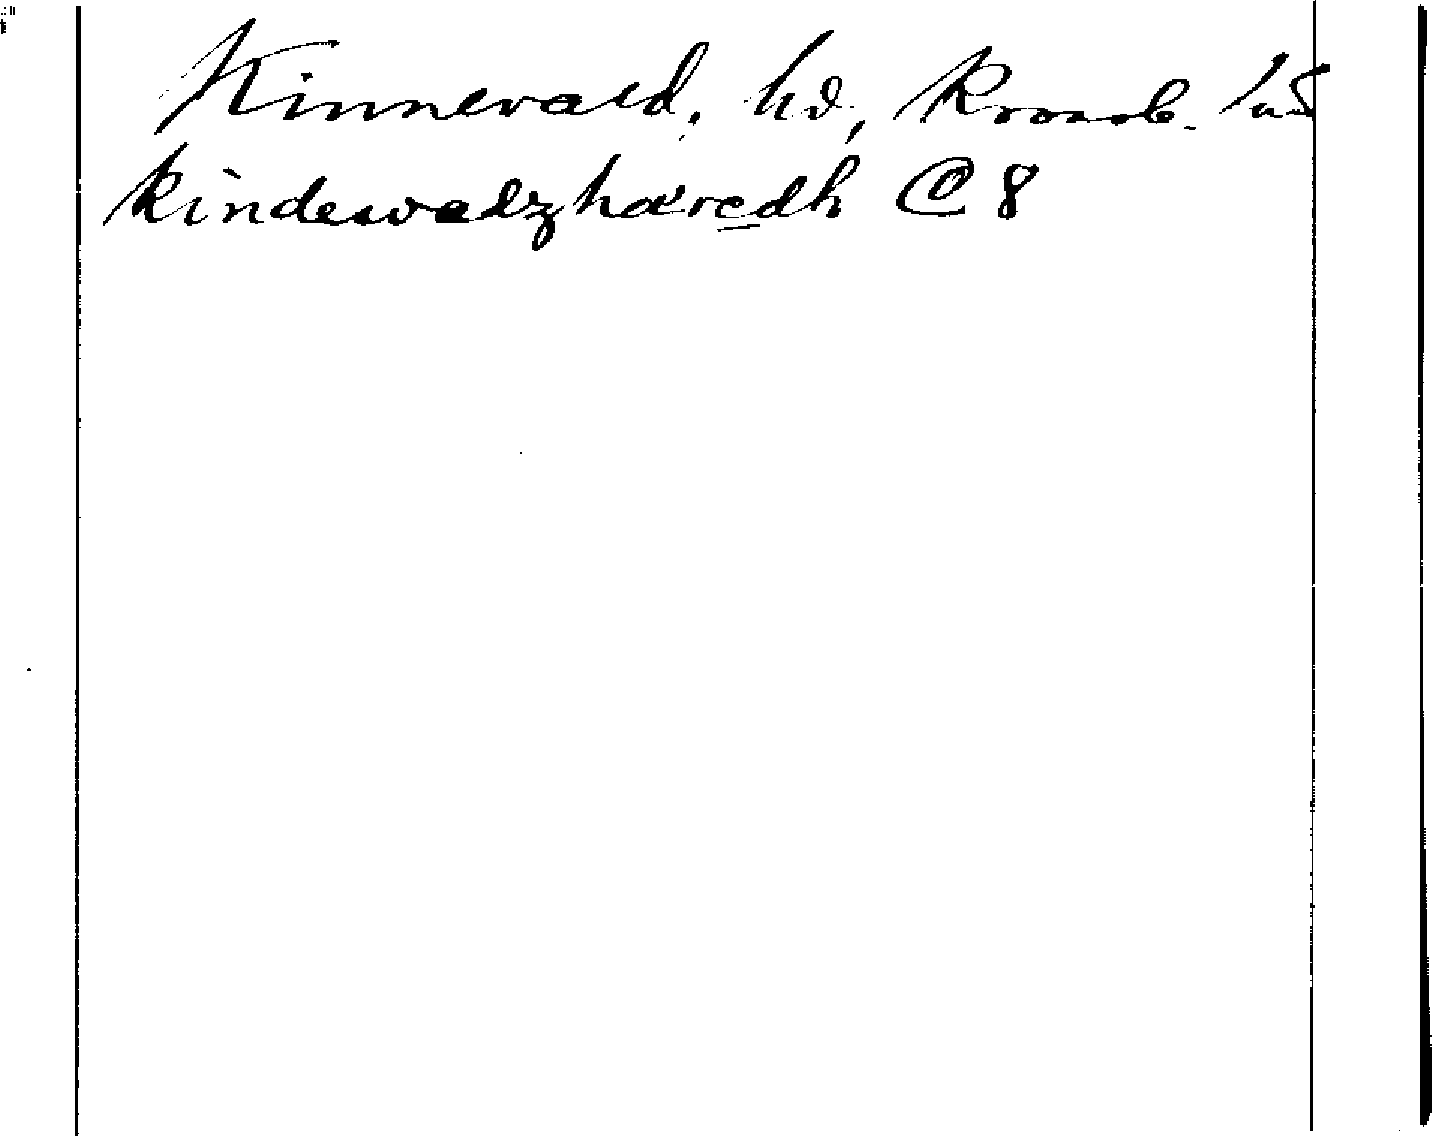 Kinnevald, hd, Kronob. län
kindewadzhæredh C 8